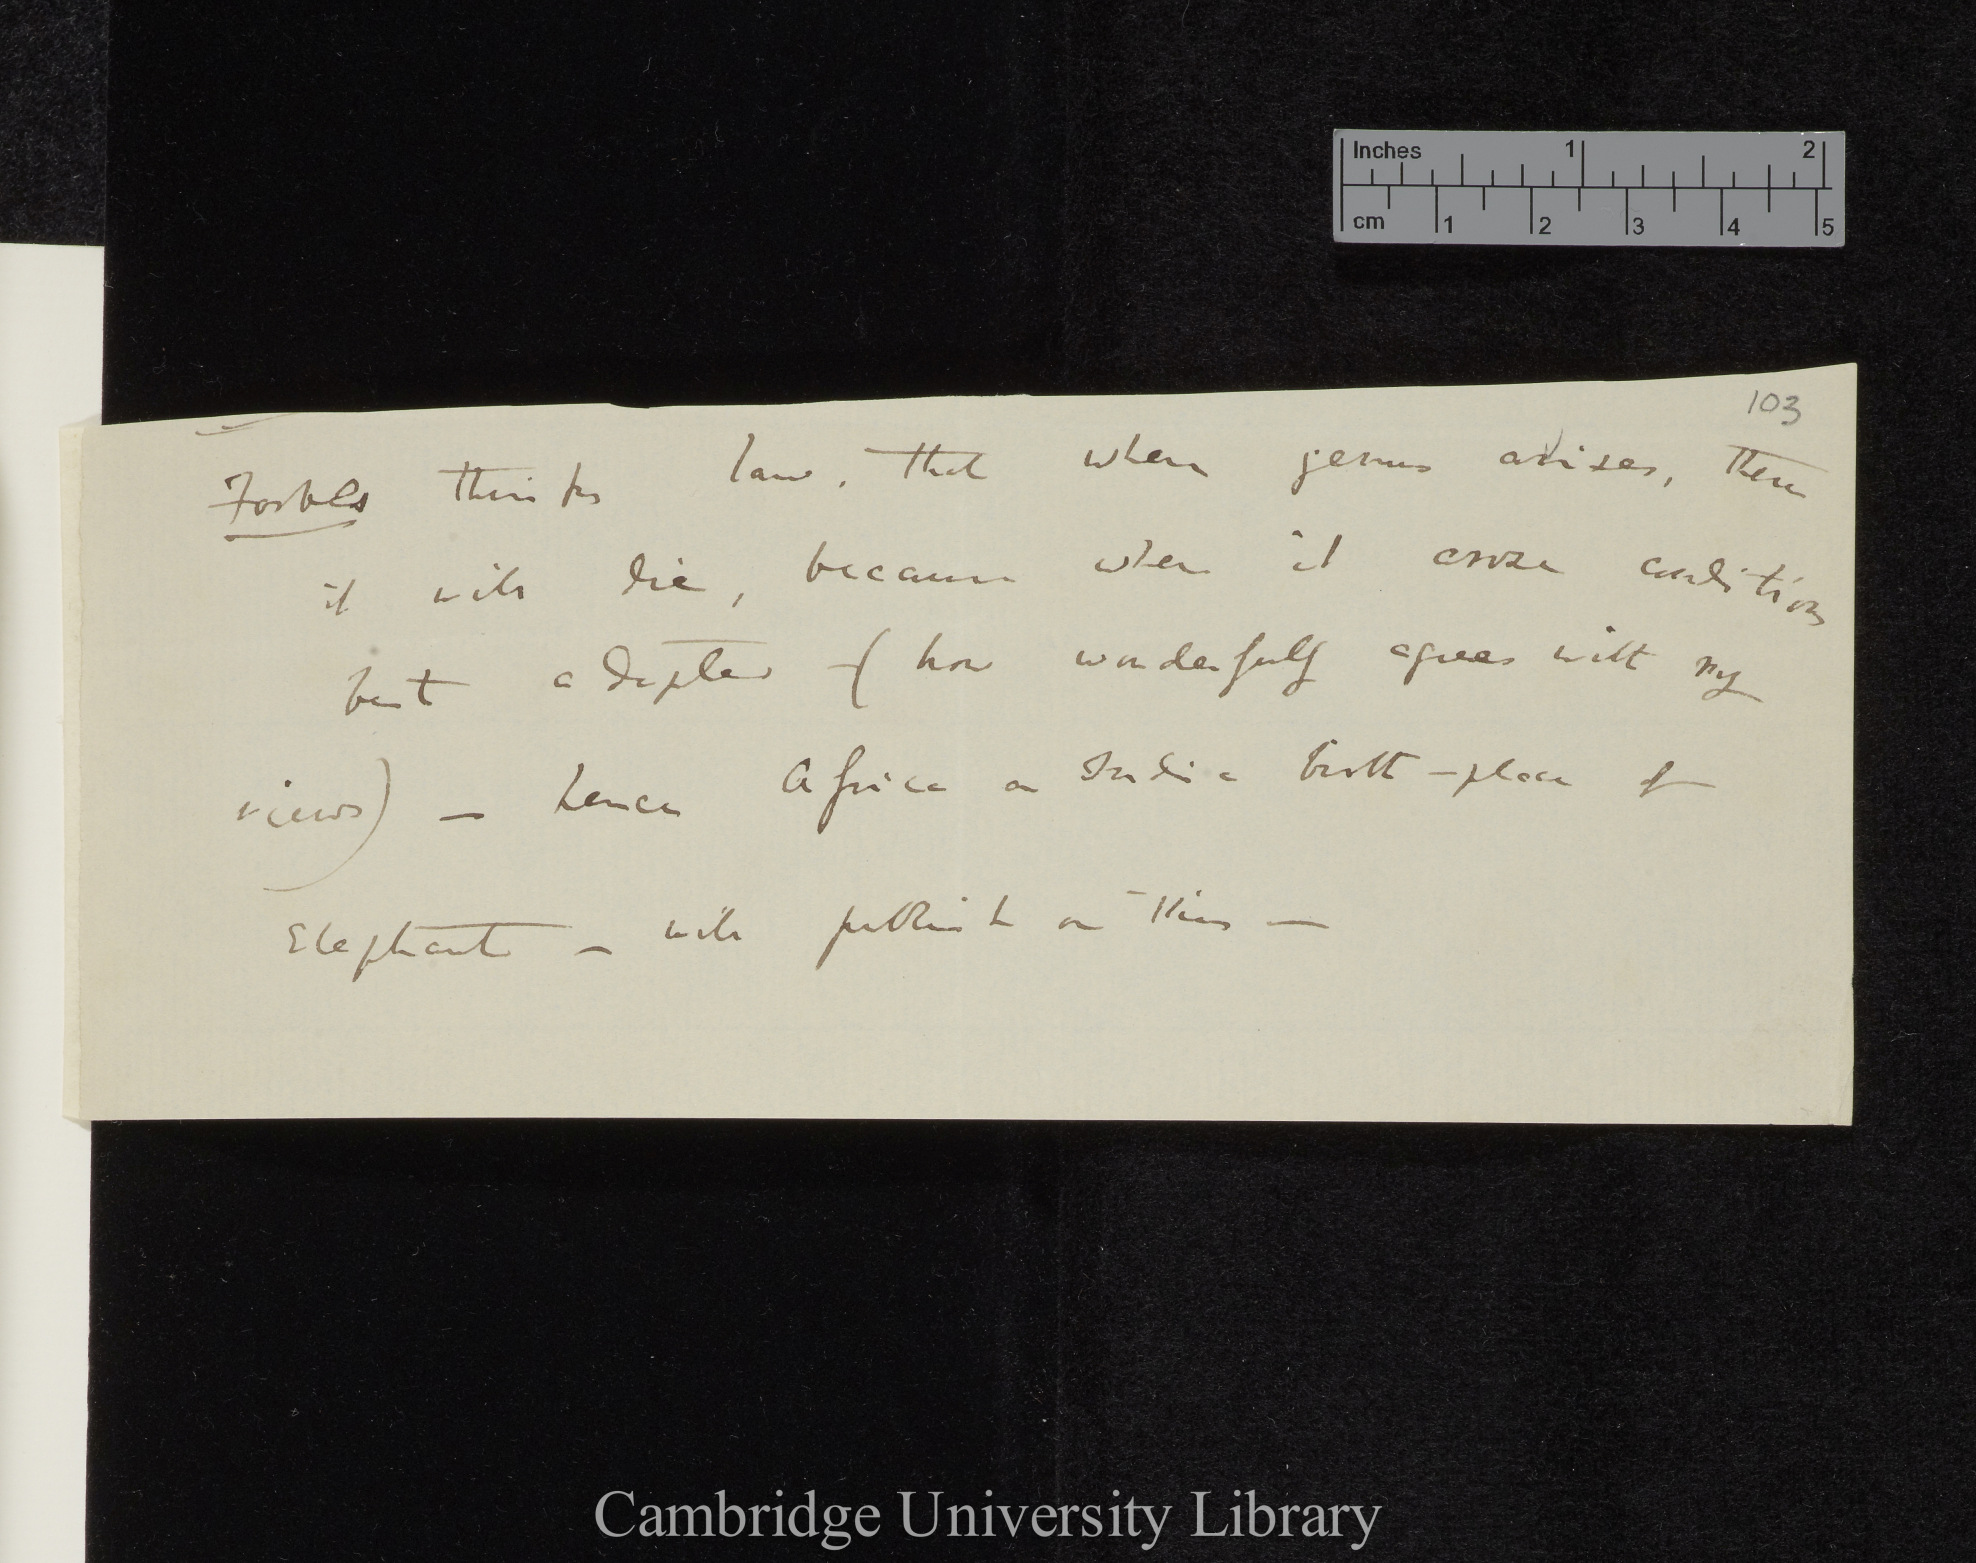 Inches 1 2
cm 1 2 3 4 5
103
Forbes thinks law, that when genus arises, there
it will die, because when it arose conditions
best adapted —(how wonderfully agrees with my
views) — hence Africa or India birth-place of
Elephant — will publish on this —
Cambridge University Library